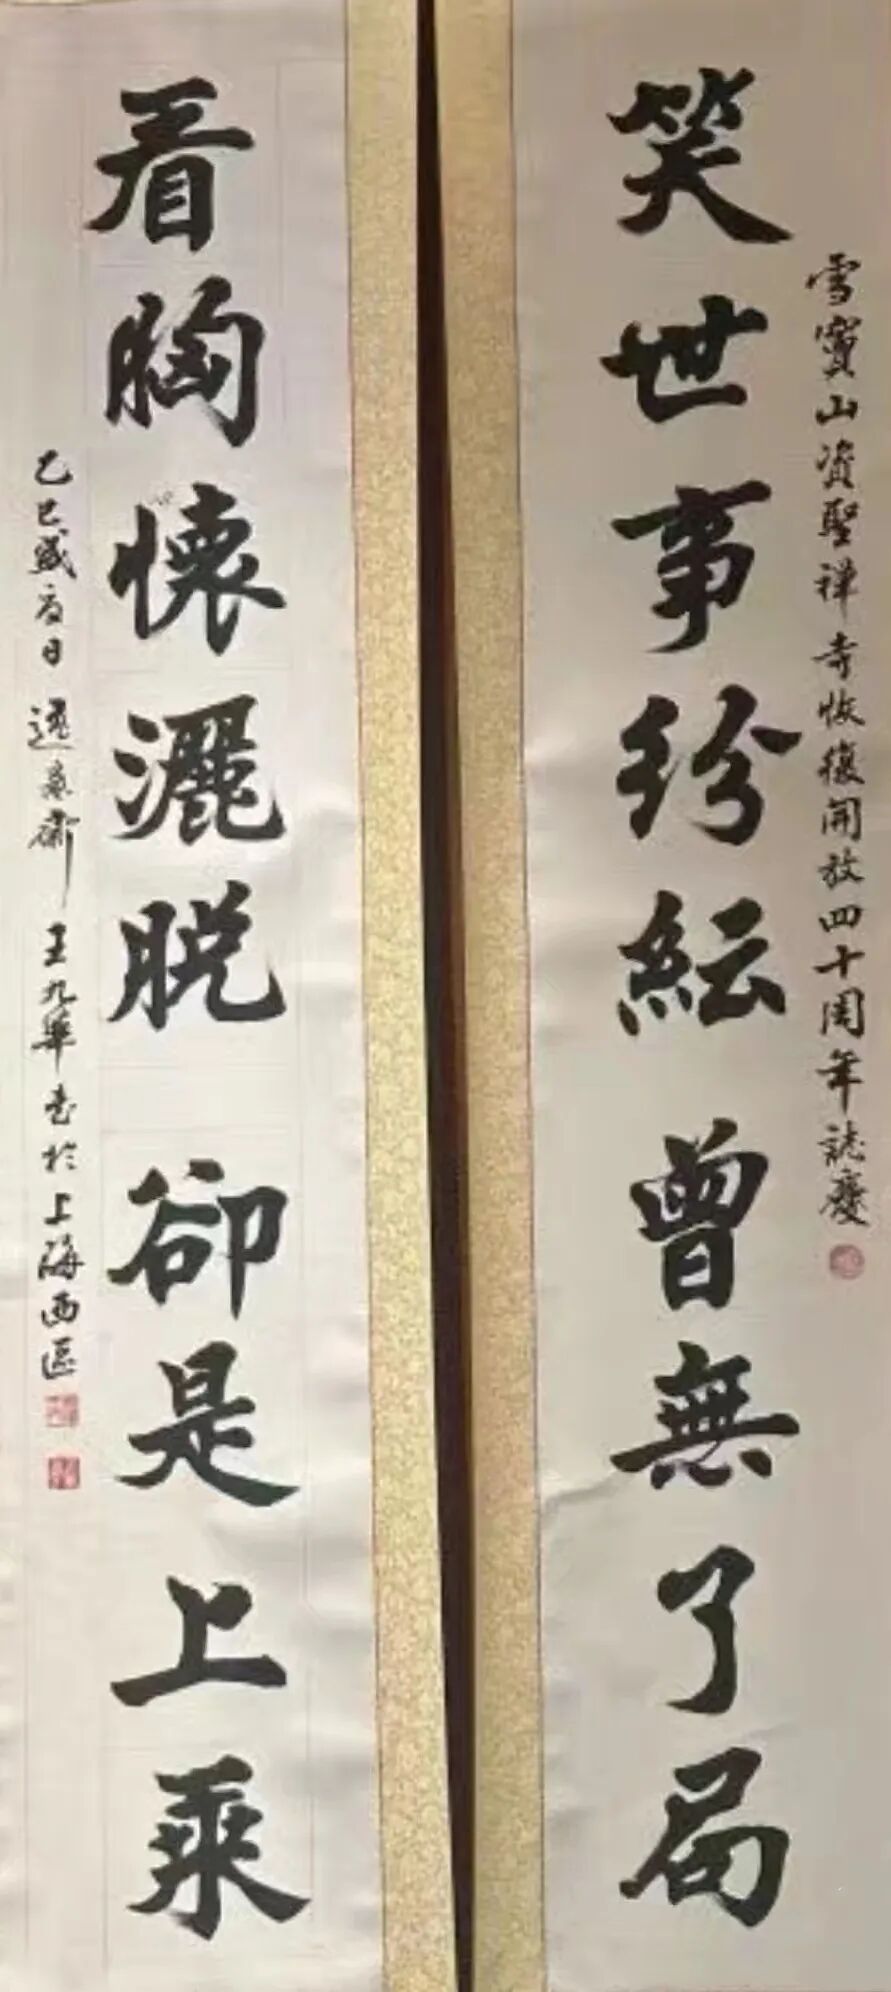 笑世事紛紜曾無了局
雪竇山資聖禪寺恢復開放四十周年誌慶
看胸懷灑脫卻是上乘
乙巳盛夏日 齋 王九華書於上海西區